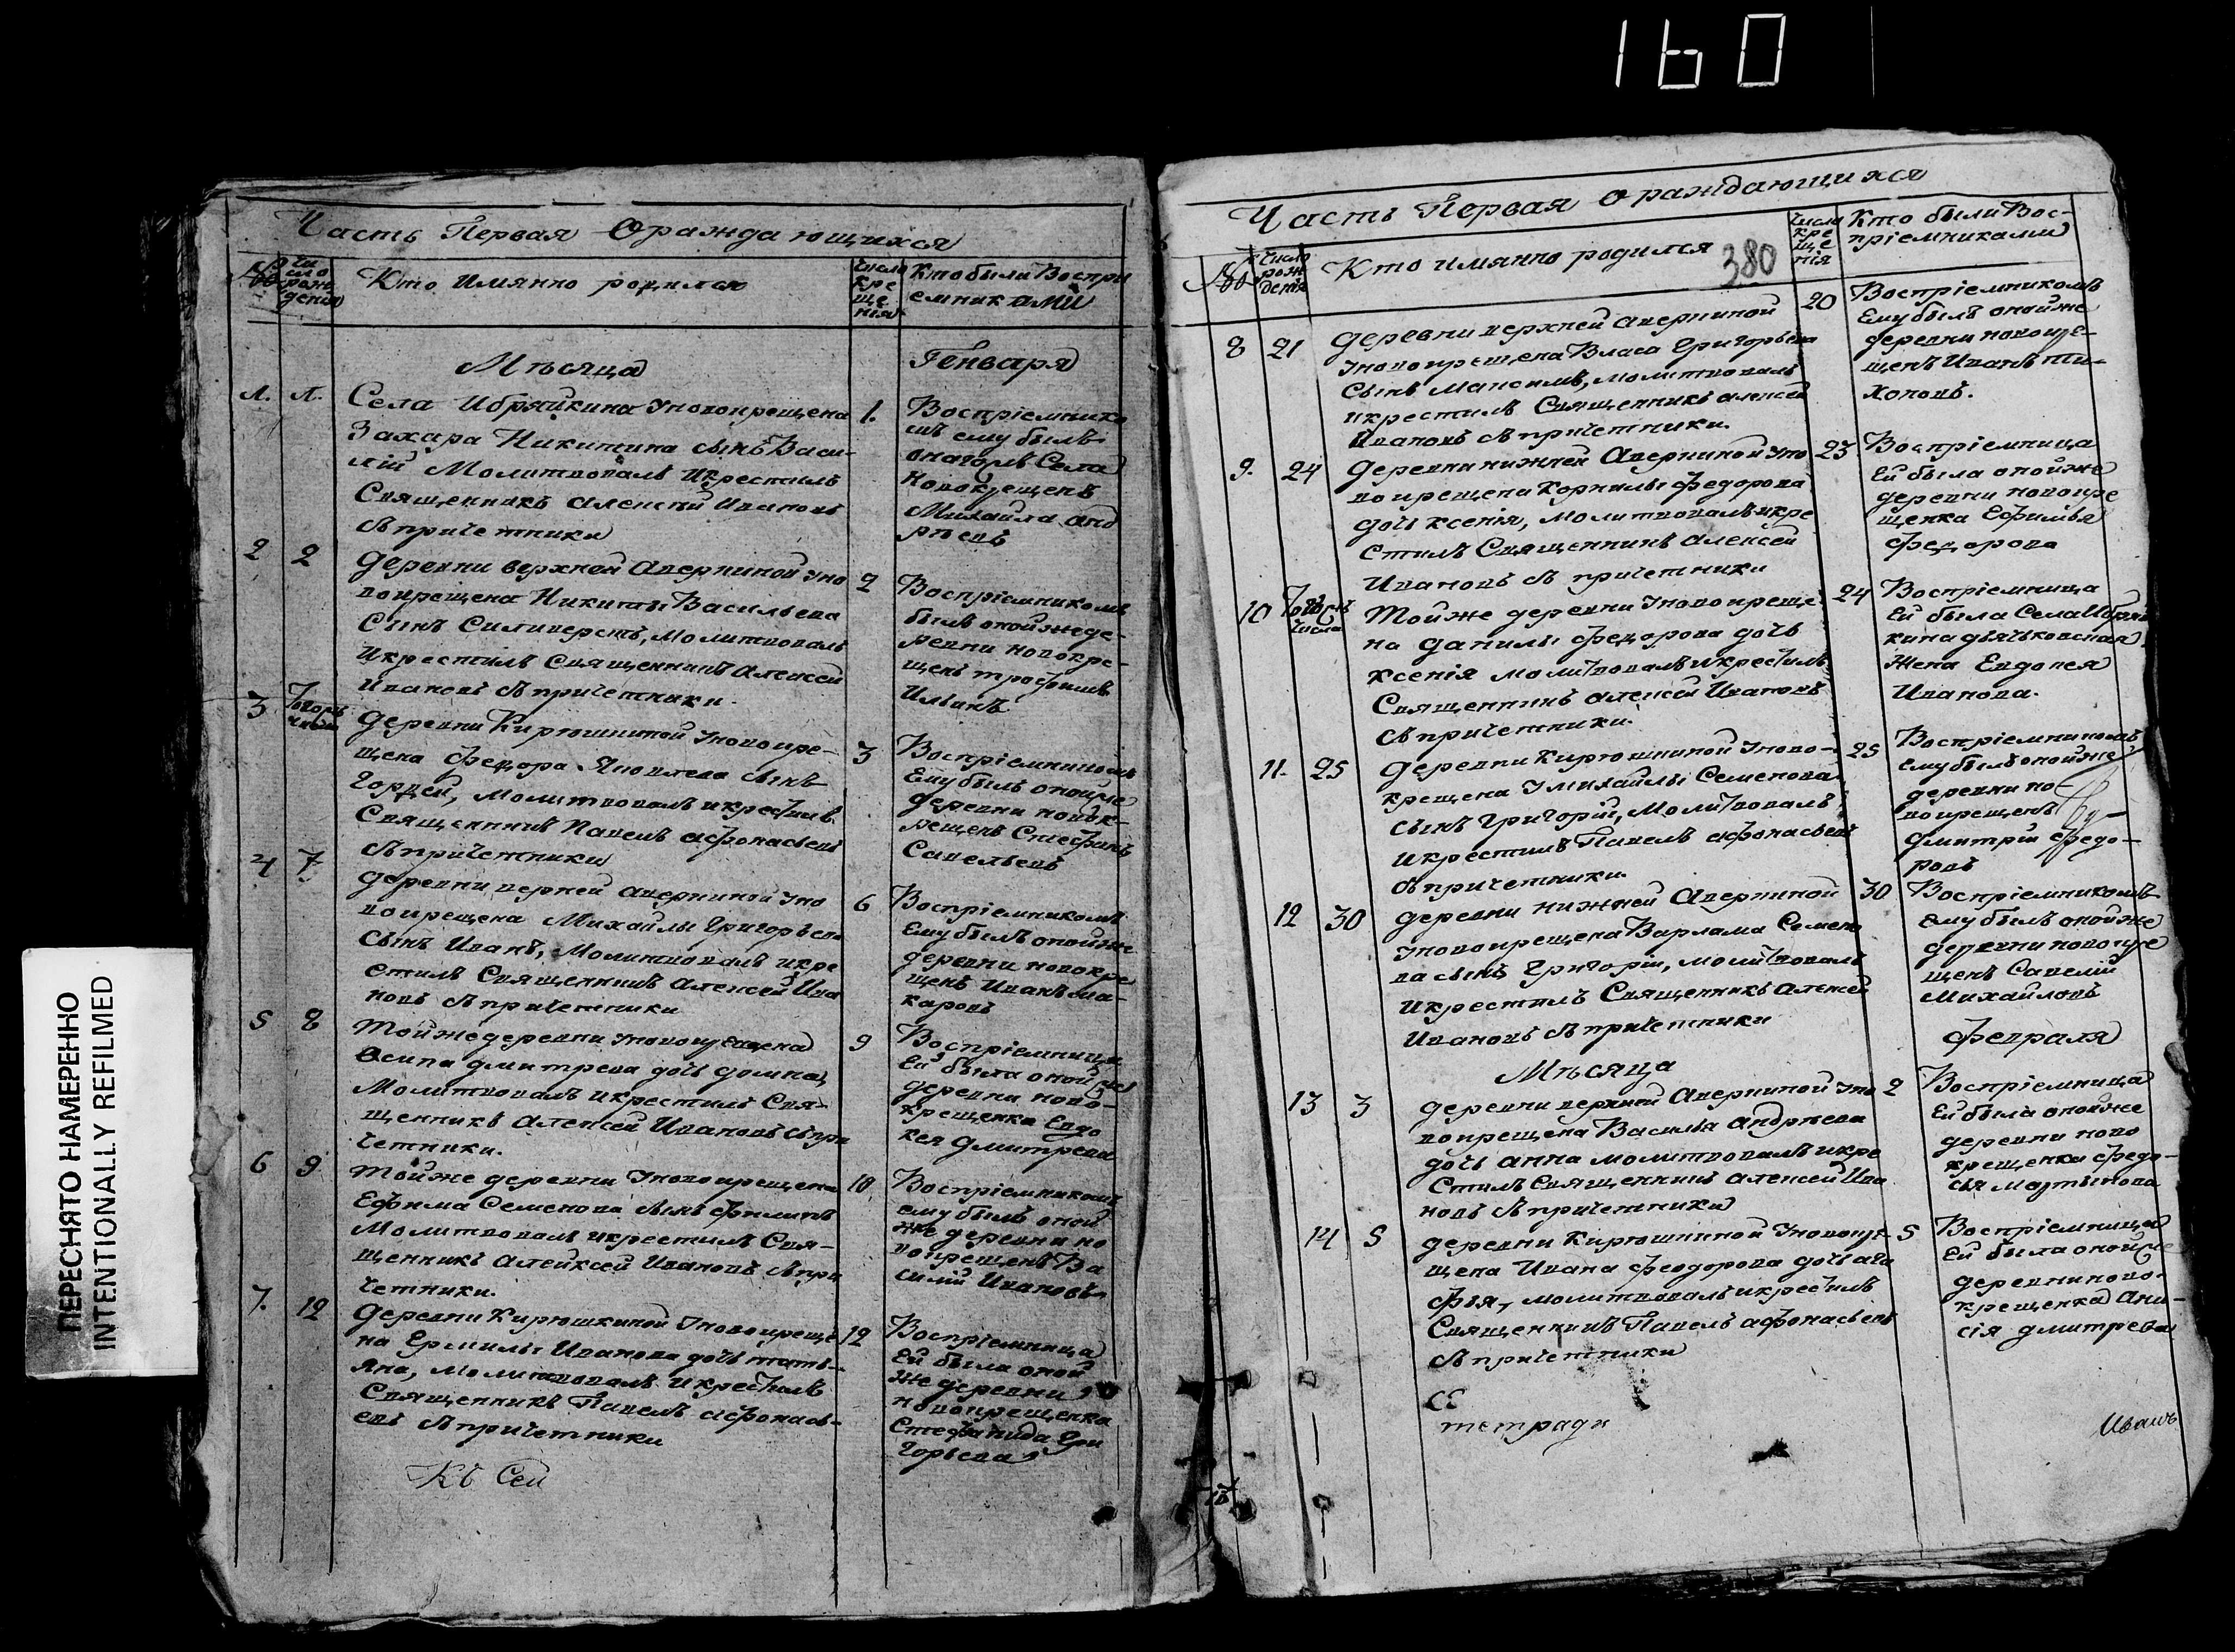 160
ПЕРЕСНЯТО НАМЕРЕННО
INTENTIONALLY REFILMED
Часть Первая О раждающихся
№
Число рождения
Кто Имянно родился
Число крещения
Кто были Воспри
емниками
Мѣсяца
Генваря
1. 1.
Села Ибряйкина Уновокрещена
Захара Никитина сынъ Васи-
лій Молитвовалъ Икрестилъ
Священникъ Алексѣй Ивановъ
Спричетники
1.
Воспріемнико
мъ ему былъ
онагожъ Села
Новокрещенъ
Михайла Анд
рѣевъ
2 2
Деревни верхней Аверкиной Уно
вокрещена Никиты Васильева
Сынъ Силиверстъ, Молитвовалъ
Икрестилъ Священникъ Алексей
Ивановъ Спричетники.
2
Воспріемникомъ
былъ онойжеде-
ревни новокре-
щенъ Трофимъ
Ильинъ
3 Тогожъ числа
Деревни Кирюшкиной Уновокре-
щена Федора Яковлева сынъ
Гордей, Молитвовалъ икрестилъ
Священникъ Павелъ Афонасьевъ
Спричетники
3
Воспріемникомъ
Ему былъ онойже
деревни новок-
рещенъ Стефанъ
Савельевъ
4 7
Деревни верней Аверкиной Уно
вокрещена Михайлы Григорьева
Сынъ Иванъ, Молитвовалъ икре
стилъ Священникъ Алексей Ива
новъ Спричетники
6
Воспріемникомъ
Ему былъ онойже
деревни новокре
щенъ Иванъ Ма-
каровъ
5 8
Тойже деревни Уновокрещена
Осипа Дмитрева дочь Домна,
Молитвовалъ икрестилъ Свя-
щенникъ Алексей Ивановъ Спри
четники.
9
Воспріемница
Ей была онойже
деревни ново-
крещенка Евдо
кея Дмитрева
6 9
Тойже деревни Уновокрещена
Ефима Семенова сынъ Филипъ
Молитвовалъ икрестилъ Свя-
щенникъ Алейксей Ивановъ Спри
четники.
10
Воспріемникомъ
ему былъ оной
же деревни но
вокрещенъ Ва
силій Ивановъ
7. 12
Деревни Кирюшкиной Уновокреще
на Ермилы Иванова дочь Тать-
яна, Молитвовалъ икрестилъ
Священникъ Павелъ Афонась-
евъ Спричетники
12
Воспріемница
Ей была оной
же деревни
новокрещенка
Стефанида Гри
горьева
Къ Сей
Часть Первая О раждающихся
№
Число рождения
Кто имянно родился
380
Число крещенія
Кто были Вос-
пріемниками
8 21
Деревни верхней Аверкиной
Уновокрещена Власа Григорьева
Сынъ Максимъ, молитвовалъ
икрестилъ Священникъ Алексей
Ивановъ Спричетники.
20
Воспріемникомъ
Ему былъ онойже
деревни новокре-
щенъ Иванъ Ти-
хоновъ.
9. 24
Деревни нижней Аверкиной Уно
вокрещена Корнилы Федорова
дочь Ксенія, Молитвовалъ икре
стилъ Священникъ Алексей
Ивановъ Спричетники
23
Воспріемница
Ей была онойже
деревни новокре
щенка Ефимья
Федорова
10 Тогожъ числа
Тойже деревни Уновокреще
на Данилы Федорова дочь
Ксенія Молитвовалъ икрестилъ
Священникъ Алексей Ивановъ
Спричетники.
24
Воспріемница
Ей была Села Ибряй
кина дьячковская
Жена Евдокея
Иванова.
11. 25
Деревни Кирюшкиной Уново-
крещена Умихайлы Семенова
сынъ Григорій, Молитвовалъ
икрестилъ Павелъ Афонасьевъ
Спричетники.
25
Воспріемникомъ
Ему былъ онойже
деревни но-
вокрещенъ
Дмитрій Федо-
ровъ
12 30
Деревни нижней Аверкиной
Уновокрещена Варлама Семено
ва сынъ Григорій, Молитвовалъ
икрестилъ Священникъ Алексей
Ивановъ Спричетники
30
Воспріемникомъ
Ему былъ онойже
деревни новокре
щенъ Савелій
Михайловъ
Мѣсяца
Февраля
13 3
Деревни верхней Аверкиной Уно
вокрещена Василья Андрѣева
дочь Анна Молитвовалъ икре
стилъ Священникъ Алексей Ива
новъ Спричетники
2
Воспріемница
Ей была онойже
деревни ново
крещенка Федо-
сья Мартынова
14 5
Деревни Кирюшкиной Уновокре
щена Ивана Феодорова дочь Ага
фья, молитвовалъ икрестилъ
Священникъ Павелъ Афонасьевъ
Спричетники
5
Воспріемница
Ей была онойже
деревни ново-
крещенка Ани-
сія Дмитрева
тетради
Иванъ